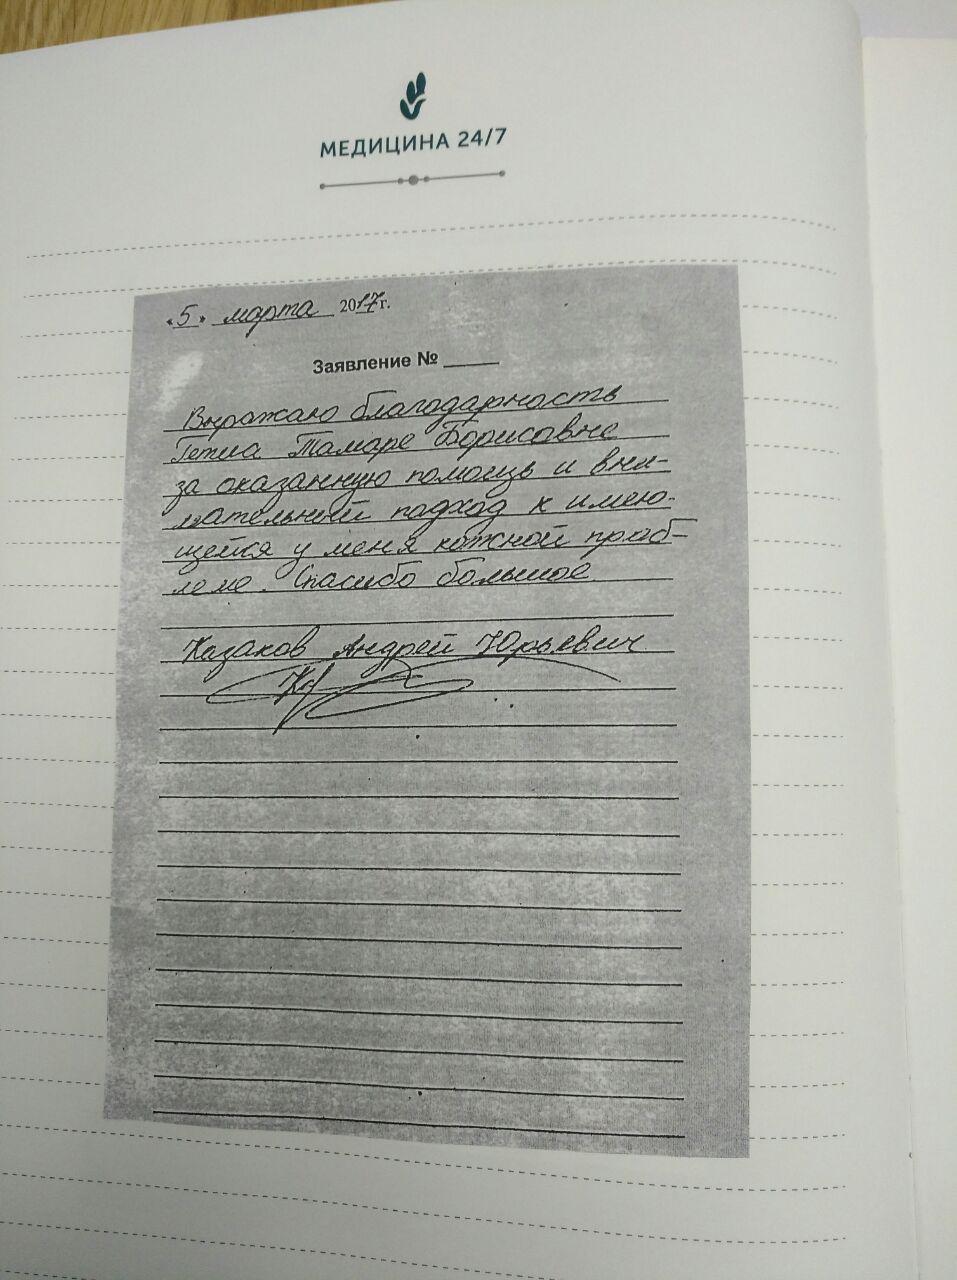 МЕДИЦИНА 24/7
«5» марта 2017г.
Заявление № _____
Выражаю благодарность
Тамаре Борисовне
за оказанную помощь и вни-
мательный подход к имею-
щейся у меня кожной проб-
леме. Спасибо большое
Казаков Андрей Юрьевич